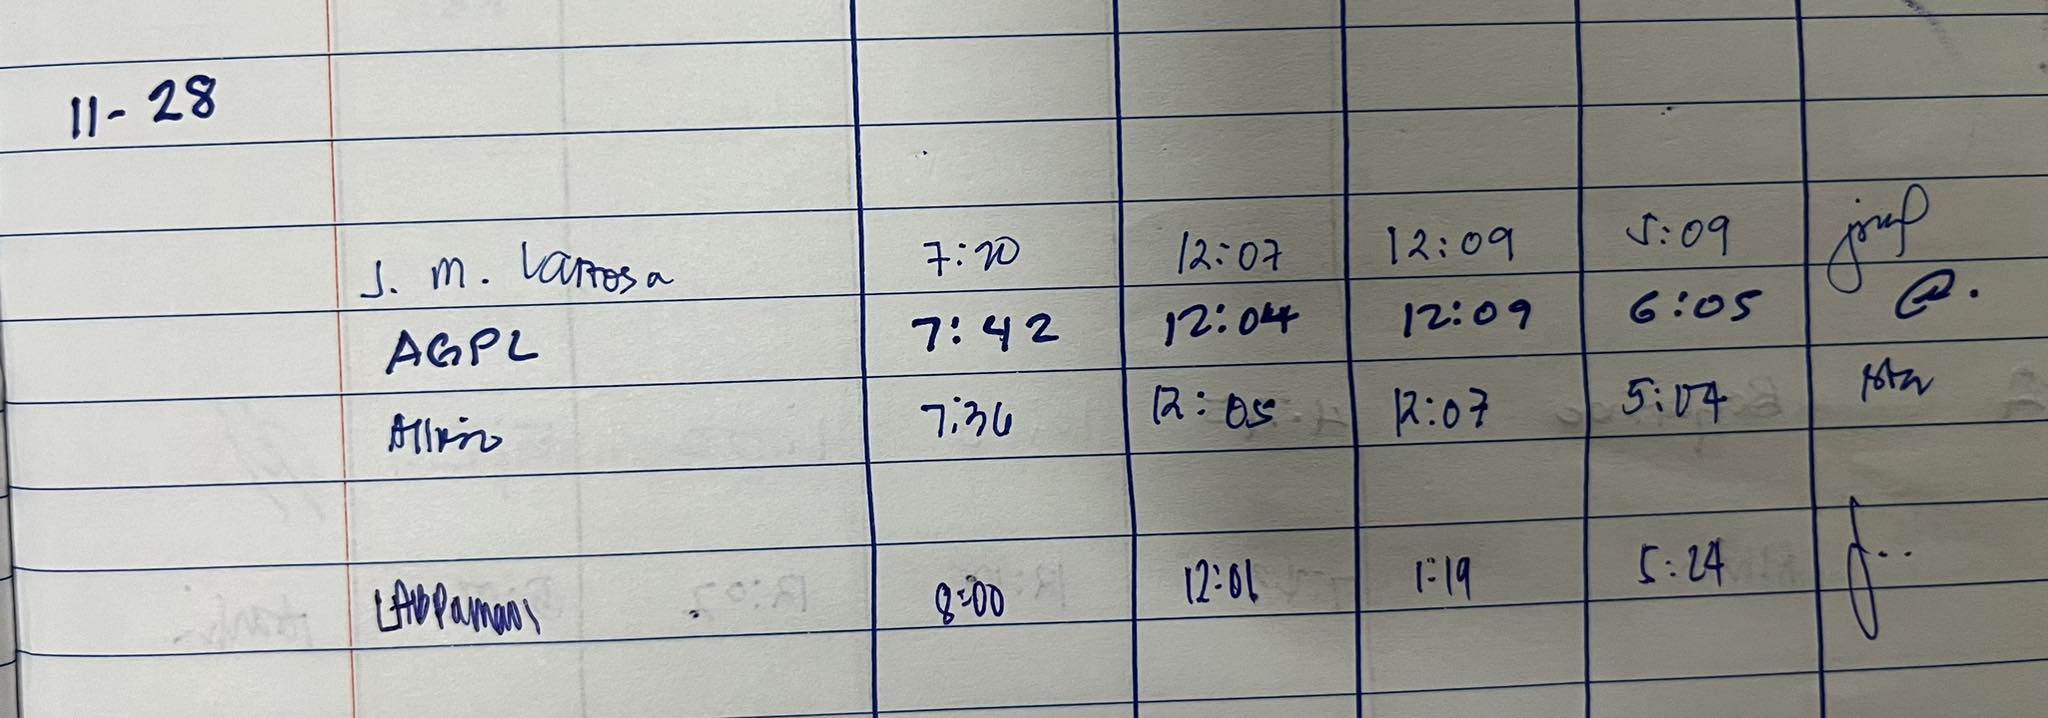 11-28
J. M. Larrosa 7:20 12:07 12:09 5:09
AGPL 7:42 12:04 12:09 6:05
7:36 12:05 12:07 5:04
8:00 12:01 1:19 5:24